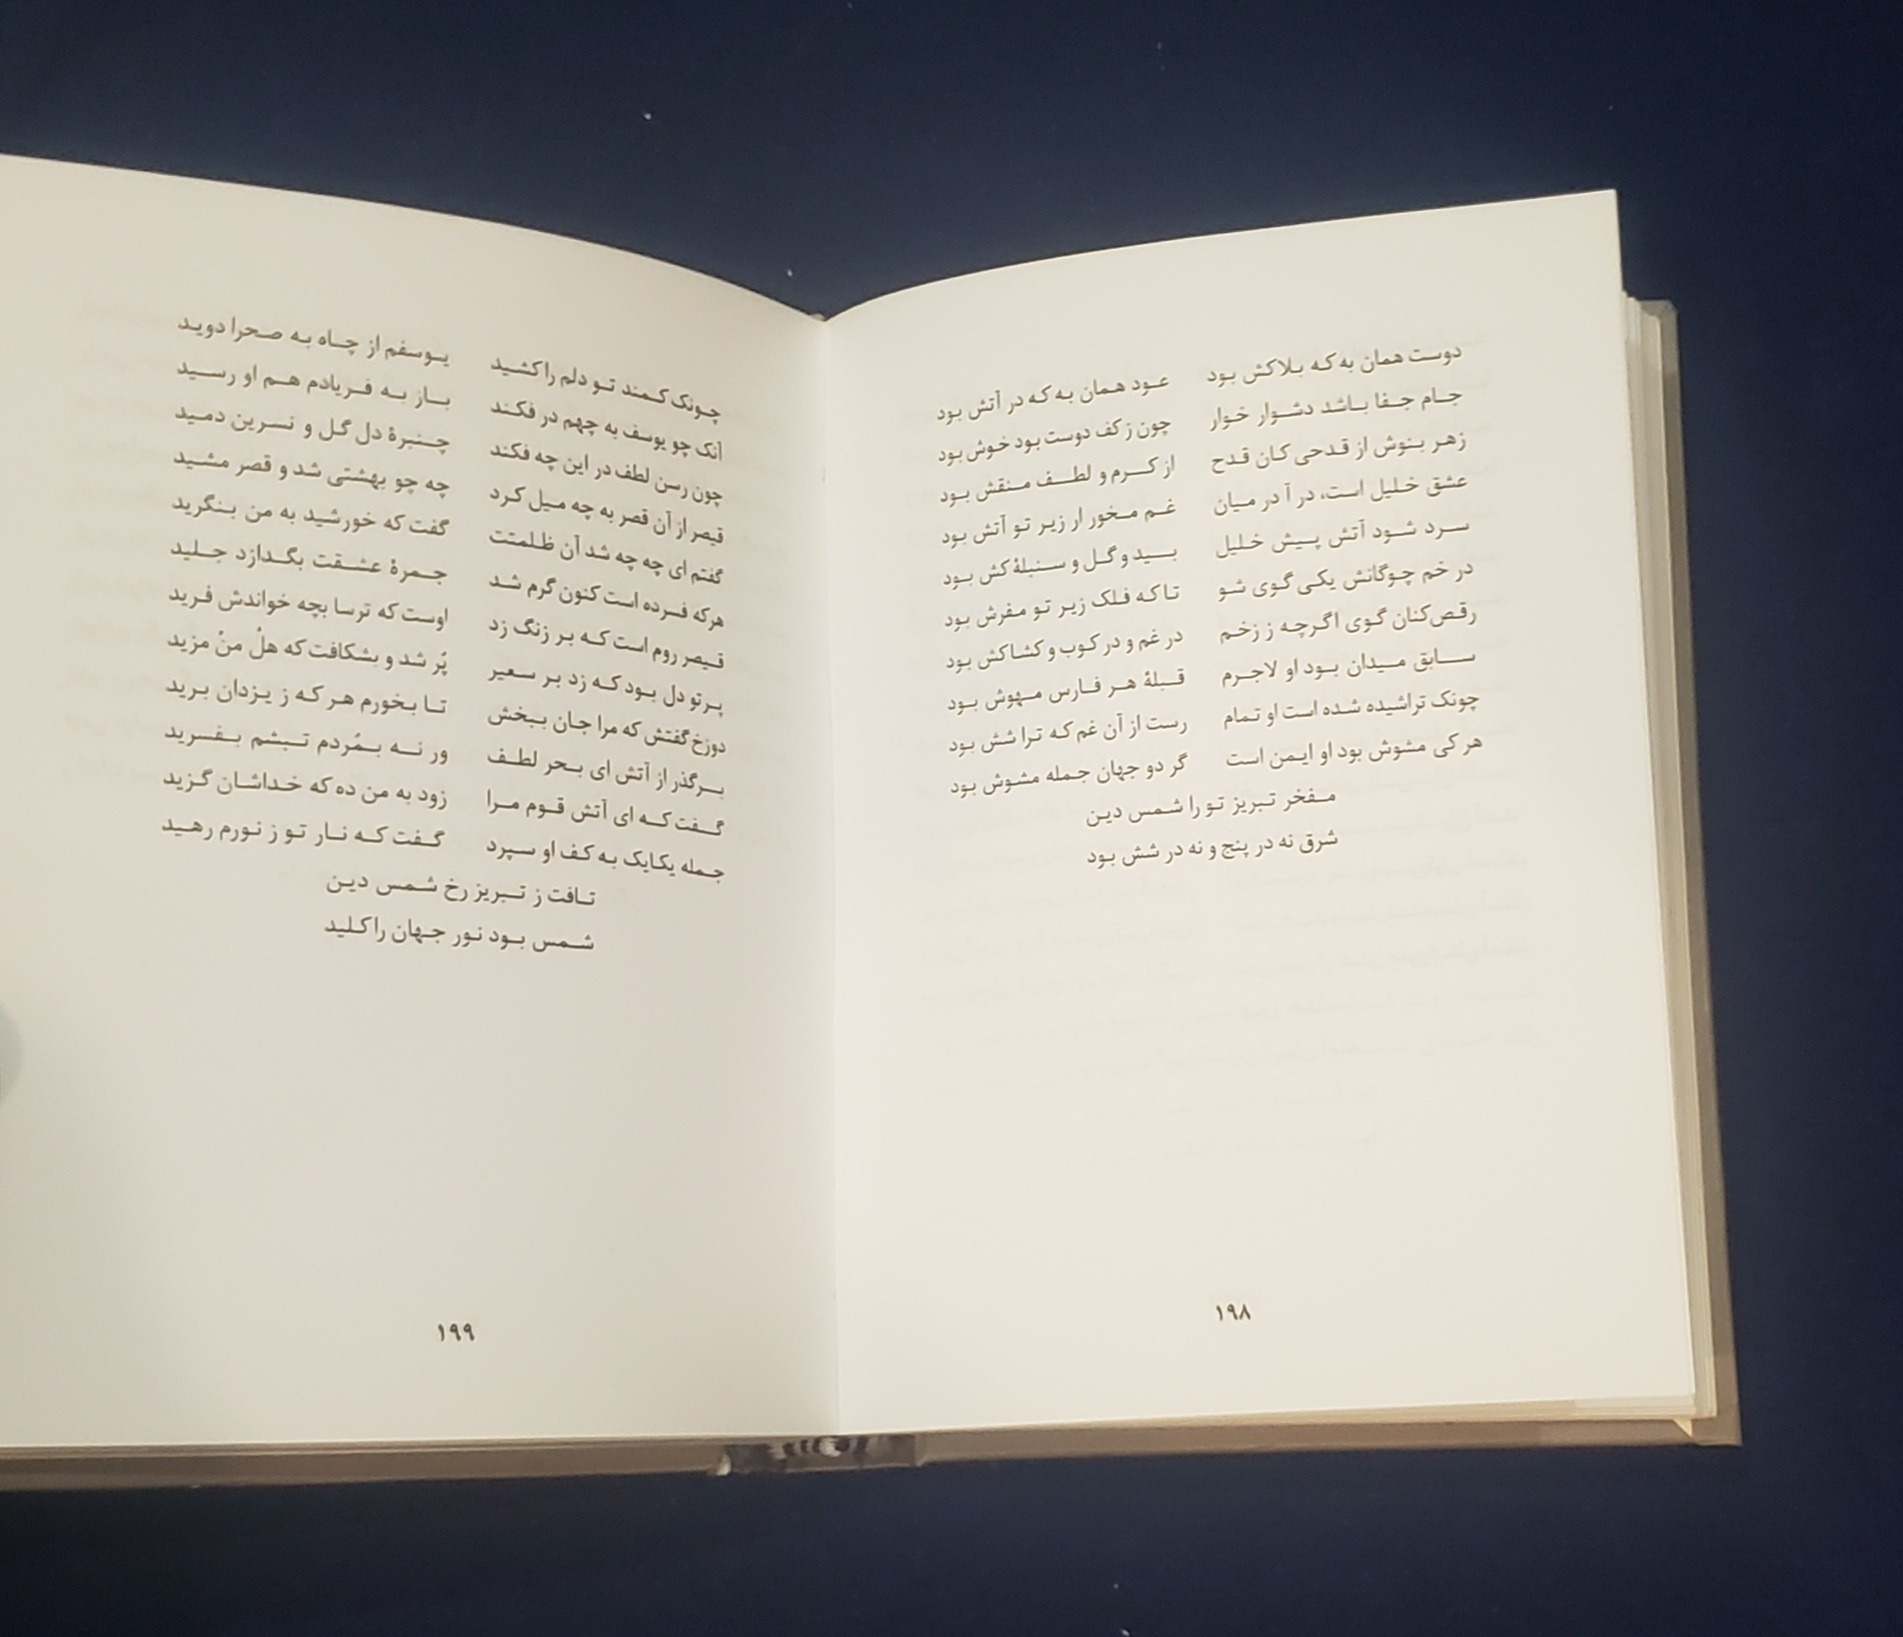 دوست همان به که بلاکش بود عود همان به که در آتش بود
جام جفا باشد دشوار خوار چون ز کف دوست بود خوش بود
زهر بنوش از قدحی کان قدح از کرم و لطف منقش بود
عشق خلیل است، در آ در میان غم مخور ار زیر تو آتش بود
سرد شود آتش پیش خلیل بید و گل و سنبلهٔ کش بود
در خم چوگانش یکی گوی شو تا که فلک زیر تو مفرش بود
رقص‌کنان گوی اگرچه ز زخم در غم و در کوب و کشاکش بود
سابق میدان بود او لاجرم قبلهٔ هر فارس مهوش بود
چونک تراشیده شده است او تمام رست از آن غم که تراشش بود
هر کی مشوش بود او ایمن است گر دو جهان جمله مشوش بود
مفخر تبریز تو را شمس دین
شرق نه در پنج و نه در شش بود
۱۹۸
چونک کمند تو دلم را کشید یوسفم از چاه به صحرا دوید
آنک چو یوسف به چهم در فکند باز به فریادم هم او رسید
چون رسن لطف در این چه فکند چنبرهٔ دل گل و نسرین دمید
قیصر از آن قصر به چه میل کرد چه چو بهشتی شد و قصر مشید
گفتم ای چه چه شد آن ظلمتت گفت که خورشید به من بنگرید
هرکه فسرده است کنون گرم شد جمرهٔ عشقت بگدازد جلید
قیصر روم است که بر زنگ زد اوست که ترسا بچه خواندش فرید
پرتو دل بود که زد بر سعیر پُر شد و بشکافت که هلْ منْ مزید
دوزخ گفتش که مرا جان ببخش تا بخورم هر که ز یزدان برید
برگذر از آتش ای بحر لطف ور نه بمُردم تبشم بفسرید
گفت که ای آتش قوم مرا زود به من ده که خداشان گزید
جمله یکایک به کف او سپرد گفت که نار تو ز نورم رهید
تافت ز تبریز رخ شمس دین
شمس بود نور جهان را کلید
۱۹۹